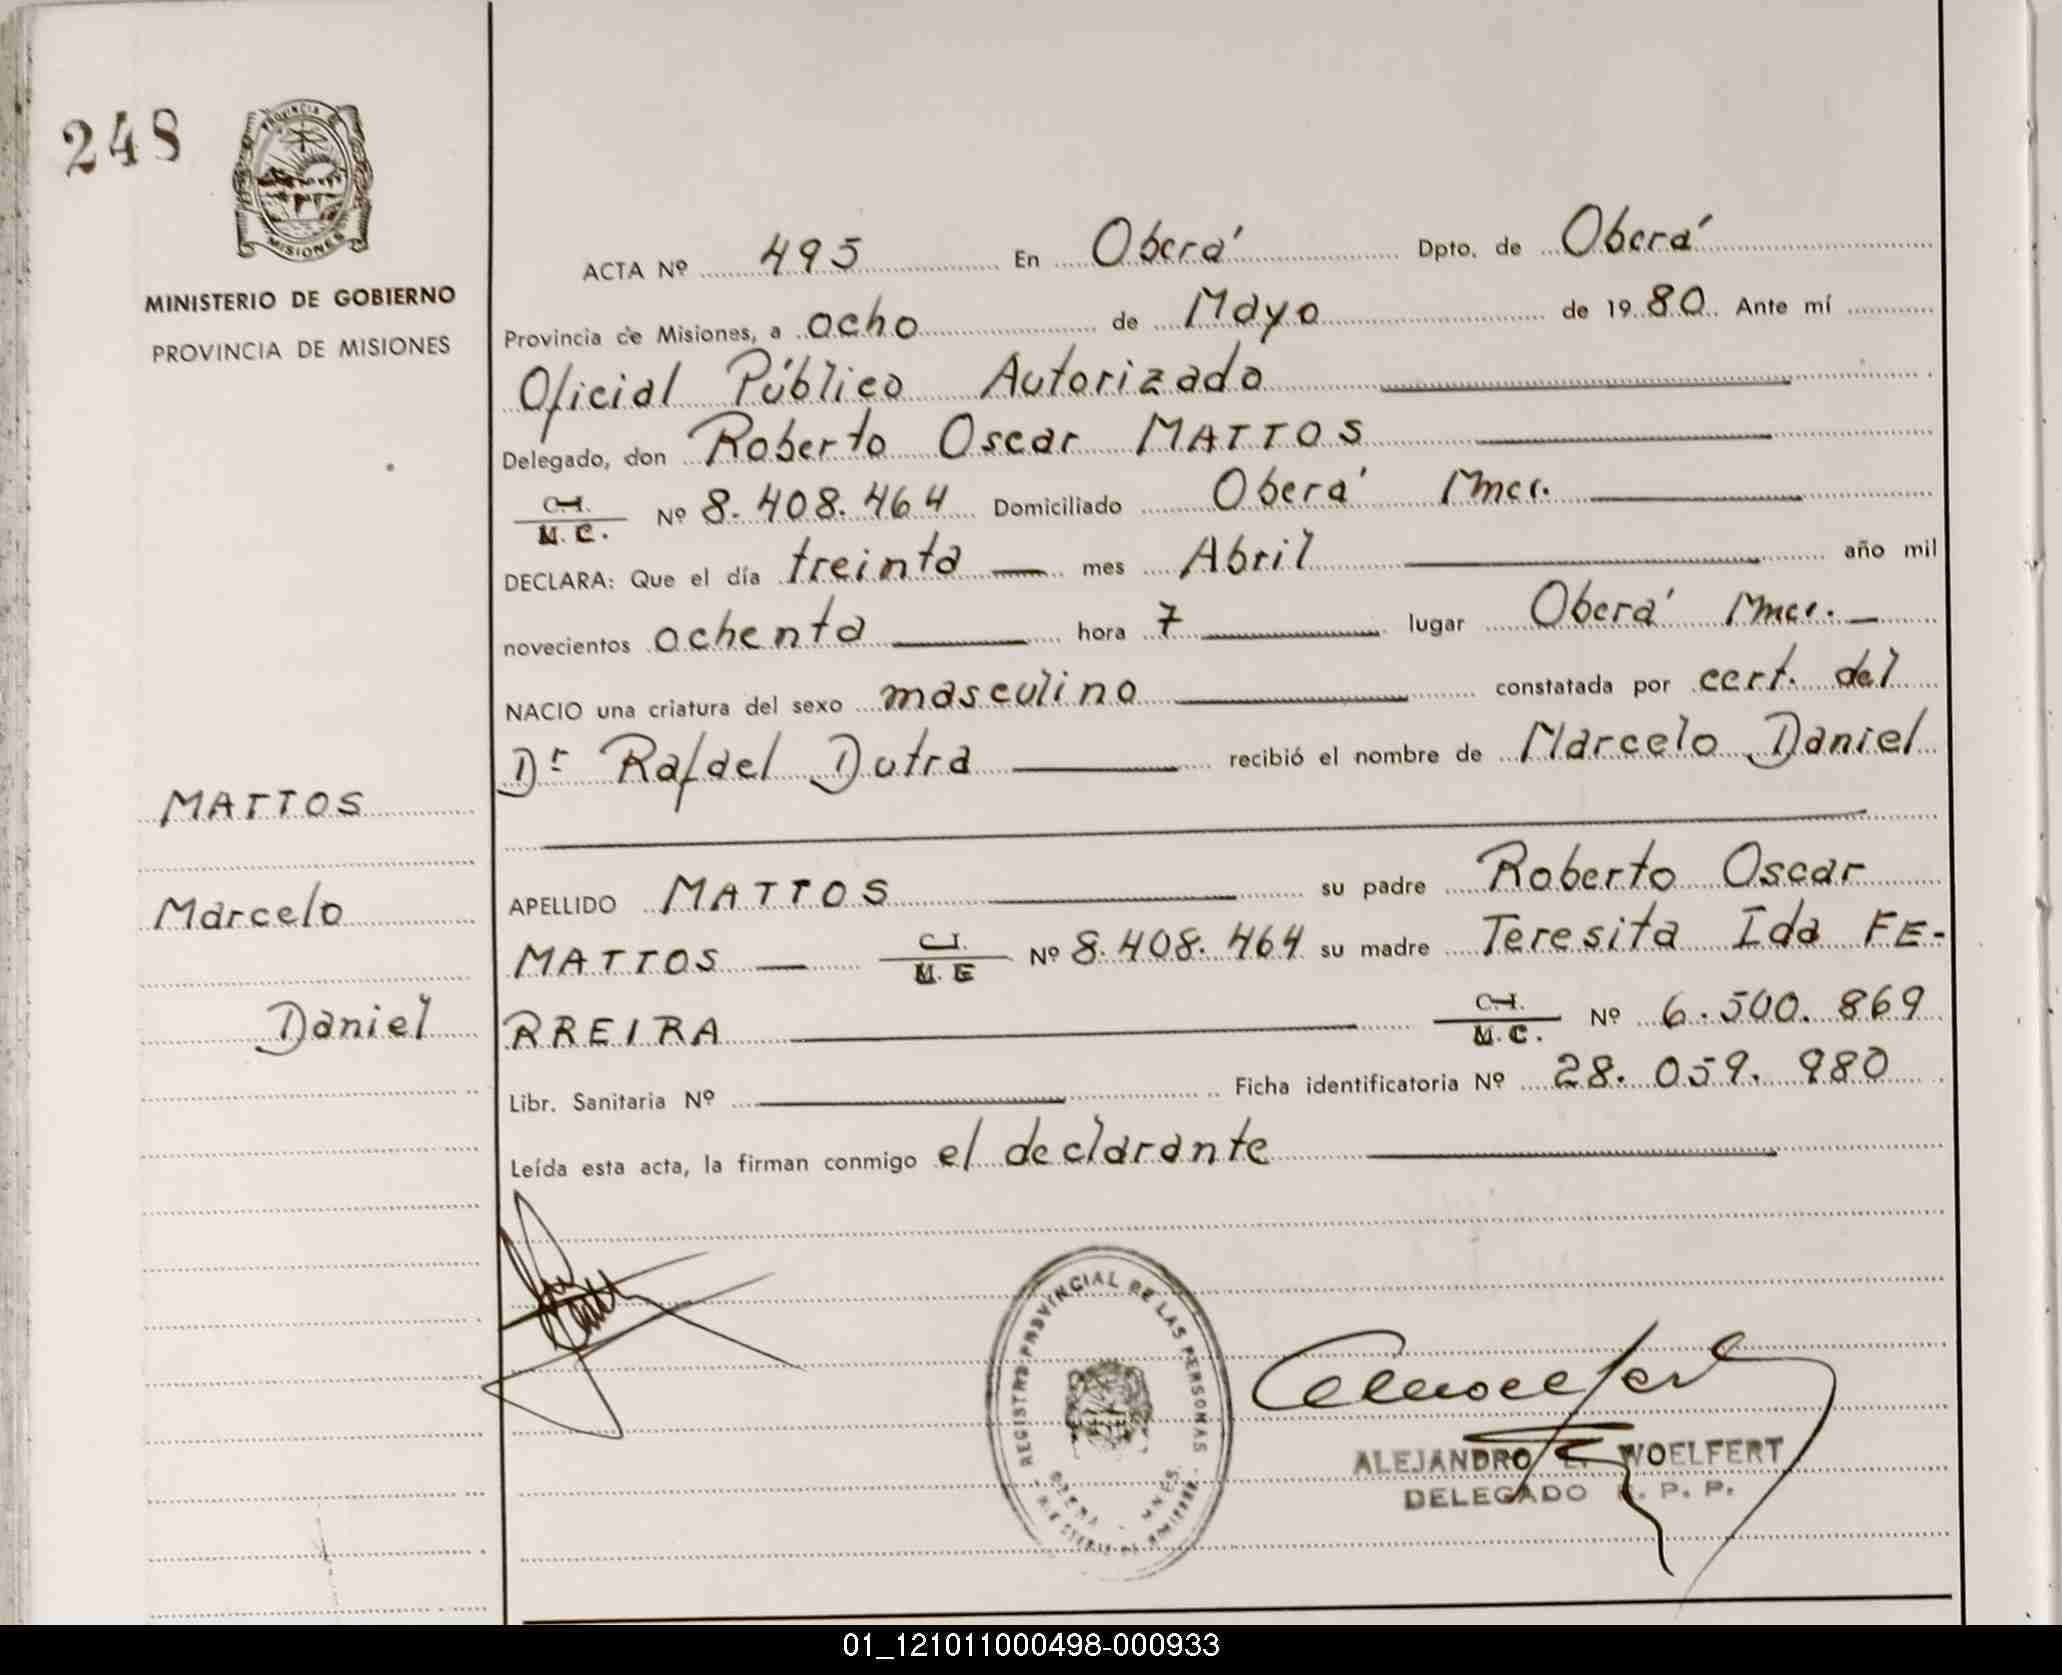 248
PROVINCIA DE
MISIONES
MINISTERIO DE GOBIERNO
PROVINCIA DE MISIONES
MATTOS
Marcelo
Daniel
ACTA Nº 495 En Oberá Dpto. de Oberá
Provincia de Misiones, a ocho de Mayo de 1980. Ante mí
Oficial Público Autorizado
Delegado, don Roberto Oscar MATTOS
C.I. / M. C. Nº 8.408.464 Domiciliado Oberá Mnes.
DECLARA: Que el día treinta mes Abril año mil
novecientos ochenta hora 7 lugar Oberá Mnes.
NACIO una criatura del sexo masculino constatada por cert. del
Dr Rafael Dutra recibió el nombre de Marcelo Daniel
APELLIDO MATTOS su padre Roberto Oscar
MATTOS C.I. / M. E Nº 8.408.464 su madre Teresita Ida FE-
RREIRA C.I. / M. C. Nº 6.500.869
Libr. Sanitaria Nº Ficha identificatoria Nº 28.059.980
Leída esta acta, la firman conmigo el declarante
REGISTRO PROVINCIAL DE LAS PERSONAS
OBERA - MNES.
ALEJANDRO E. WOELFERT
DELEGADO R. P. P.
01_121011000498-000933